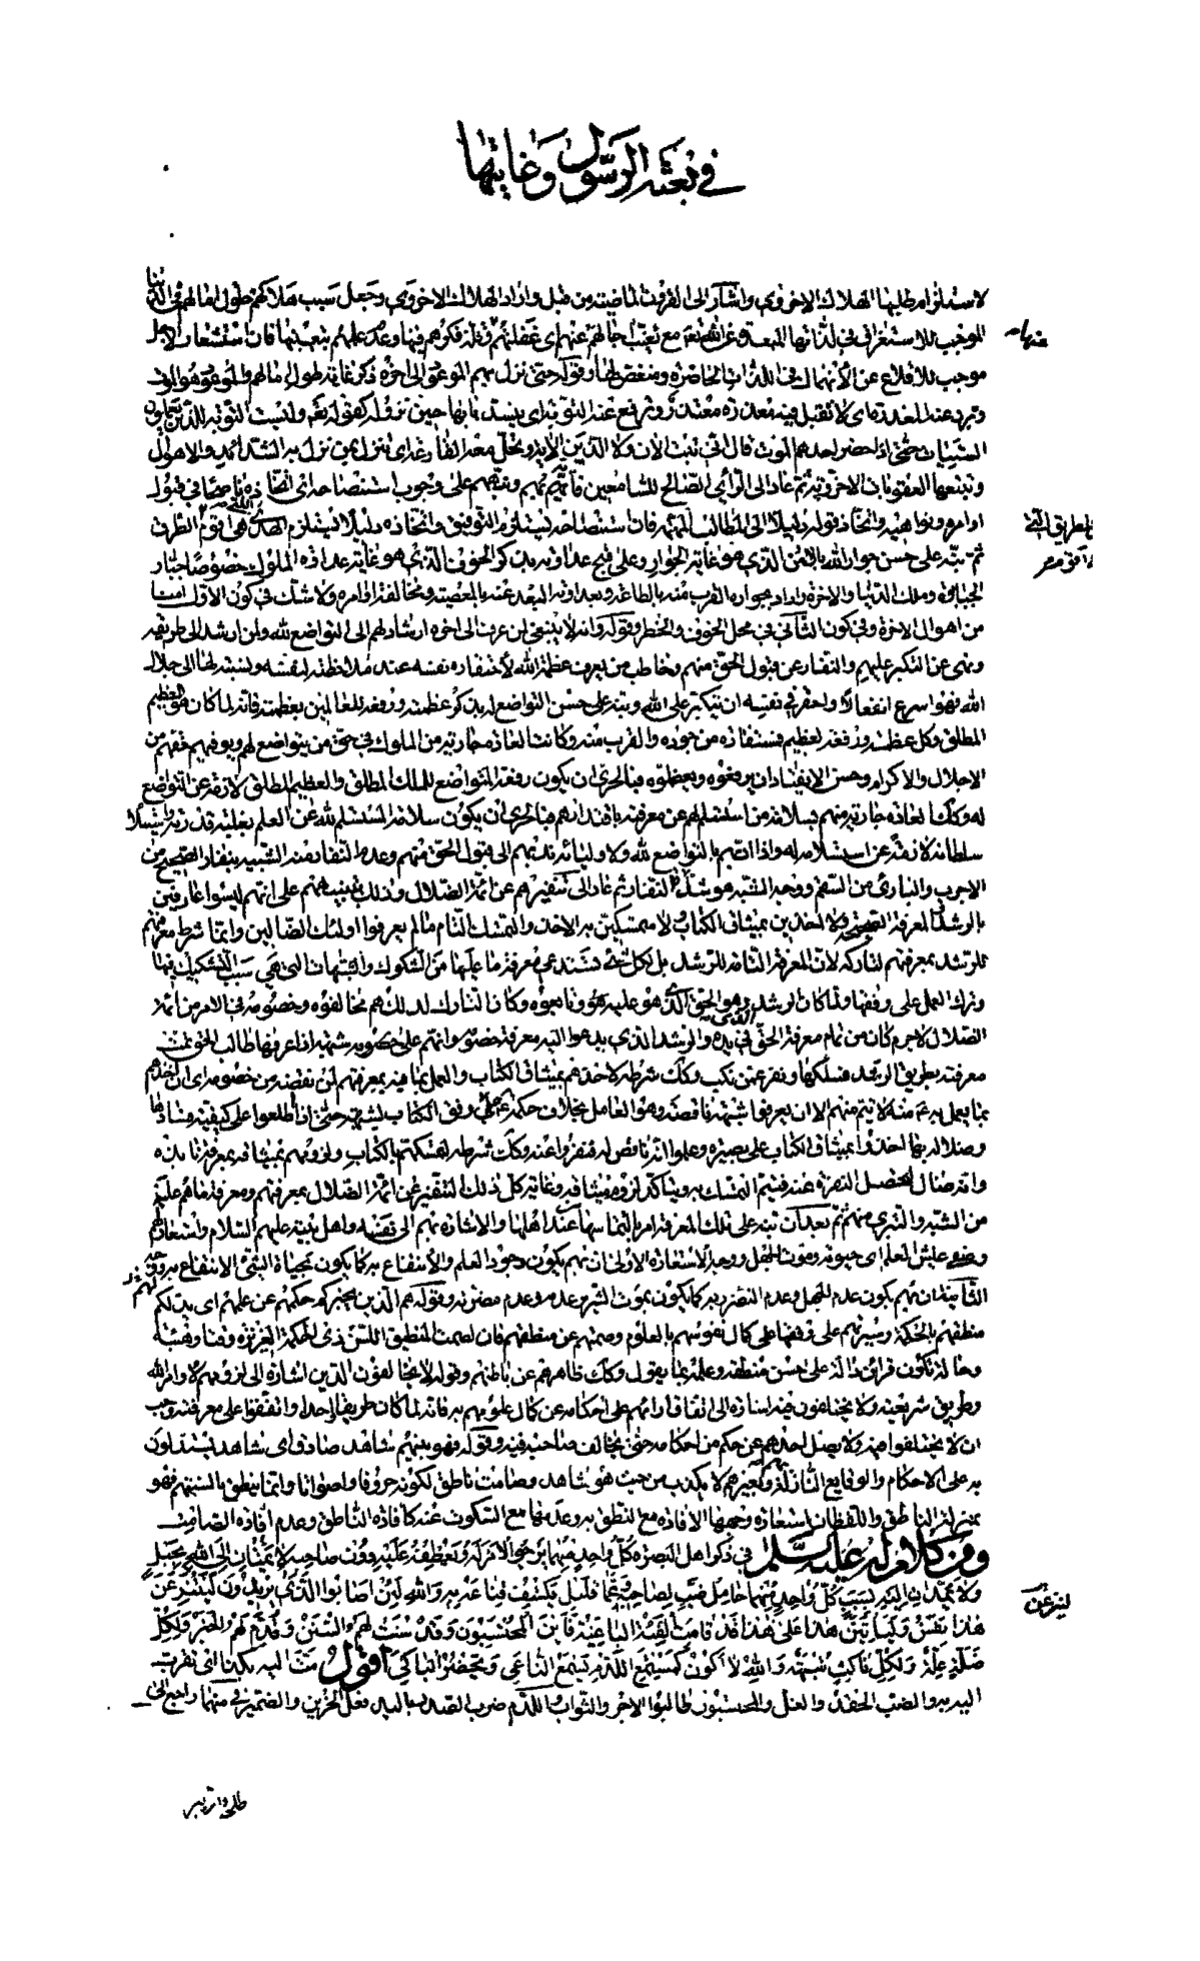 في بعثة الرسول وغايتها
لاستلزام طلبها الهلاك الاخروي واشار الى القرون الماضية من قبل واراد الهلاك الاخروي وجعل سبب هلاكهم طول امالهم في الدنيا
الموجب للاستغراق في لذاتها المبعدة عن الله تعالى مع تغيب اجالهم عنهم اي غفلتهم وقلة فكرهم فيها وعدم علمهم بتعيينها فان استشعار الاجل
عنهم
موجب للاقلاع عن الانهماك في اللذات الحاضرة ومنغص لها وقوله حتى نزل بهم الموعود الى اخره ذكر غاية طول امالهم والموعود هو الموت
وترد عنه المعذرة اي لا تقبل فيه معذرة معتذر وترفع عنه التوبة اي ينسد بابها حين نزوله كقوله تعالى وليست التوبة للذين يعملون
السيئات حتى اذا حضر احدهم الموت قال اني تبت الان ولا الذين الاية وتحل معه القارعة اي تنزل بمن نزل به الشدائد والاهوال
وتتبعها العقوبات الاخروية ثم عاد الى الرأي الصالح للسامعين فايه بهم ونبههم على وجوب استنصاحه اي اتخاذه ناصحا في قبول
اوامره ونواهيه واتخاذ قوله دليلا الى المطالب المهمة فان استنصاحه يستلزم التوفيق واتخاذه دليلا يستلزم الهدى للتي هي اقوم الطرق
ثم نبه على حسن جوار الله بالامن الذي هو غاية الجوار وعلى قبح عداوته بذكر الخوف الذي هو غاية عداوة الملوك خصوصا جبار
الجبابرة وملك الدنيا والاخرة واراد بجواره القرب منه بالطاعة وبعداوته البعد عنه بالمعصية ومخالفة اوامره ولا شك في كون الاول امنا
من اهوال الاخرة وفي كون الثاني في محل الخوف والخطر وقوله وانه لا ينبغي لمن عرف الى اخره ارشاد لهم الى التواضع لله ولمن ارشد الى طريقه
ونهى عن التكبر عليهم والنفار عن قبول الحق منهم وخاطب من يعرف عظمة الله لاحتقاره نفسه عند ملاحظته لنفسه ونسبته لها الى جلال
الله فهو اسرع انفعالا واحقر في نفسه ان يتكبر على الله ونبه على حسن التواضع له بذكر عظمته ورفعة للعالمين بعظمته فانه لما كان هو العظيم
المطلق وكل عظمة ورفعة لعظيم فمستفادة من جوده والقرب منه وكانت العادة جارية من الملوك في حق من يتواضع لهم ويوفيهم حقهم من
الاجلال والاكرام وحسن الانقياد ان يرفعوه ويعظموه فبالحري ان يكون رفعة المتواضع للملك المطلق والعظيم المطلق لازمة عن التواضع
له وكك العادة جارية منهم بسلامة من استسلم لهم عن معرفته باقتدارهم فبالحري ان يكون سلامة المستسلم لله عن العلم بغلبة قدرته واستيلاء
سلطانه لازمة عن استسلامه له واذا امرهم بالتواضع لله ولاوليائه نبههم الى قبول الحق منهم وعدم النفار منه الشبيه بنفار الصحيح من
الاجرب والباري من السقم ووجه الشبه هو شدة النفار ثم عاد الى تنفيرهم عن ائمة الضلال وذلك بتنبيههم على انهم ليسوا عارفين
بالرشد المعرفة الصحيحة ولا اخذين بميثاق الكتاب ولا متمسكين به الاخذ والتمسك التام ما لم يعرفوا اولئك الضالين وانما شرط معرفتهم
للرشد بمعرفتهم لتاركه لان المعرفة التامة للرشد بل لكل شيء تستدعي معرفة ما عليها من الشكوك والشبهات التي هي سبب التشكيك فيها
وترك العمل على وفقها ولما كان الرشد وهو الحق الذي هو عليه هو وتابعوه وكان التارك لذلك هم مخالفوه وخصومه في الامر من ائمة
الضلال لا جرم كان من تمام معرفة الحق الذي في يده والرشد الذي يدعوا اليه معرفة خصومه وانهم على شبهة اذا عرفها طالب الحق تمت
معرفته بطريق الرشد فسلكها ونفر عمن نكب وكك شرطه لاخذهم بميثاق الكتاب والعمل بما فيه بمعرفتهم لمن نقضه من خصومه اي ان اخذهم
بما يعمل به منه لا يتم منهم الا ان يعرفوا شبهة ناقضه وهو العامل بخلاف حكمه على وفق الكتاب لشبهة حتى اذا اطلعوا على كيفية فسادها
وضلاله بها اخذوا بميثاق الكتاب على بصيرة وعلموا انه ناقض له فنفروا عنه وكك شرطه لتمسكهم بالكتاب ولزومهم بميثاقه بمعرفة نابذه
وانه ضال لتحصيل النفرة عنه فيتم التمسك به ويتأكد لزوم ميثاقه وغاية كل ذلك التنفير عن ائمة الضلال بمعرفتهم ومعرفة ما هم عليه
من الشبه والتبري منهم ثم بعد ان نبه على تلك المعرفة امر بالتماسها عند اهلها والاشارة بهم الى نفسه واهل بيته عليهم السلام واستعار لهم
وصفي عيش العلم اي حيوته وموت الجهل ووجه الاستعارة الاولى ان بهم يكون وجود العلم والانتفاع به كما يكون بحياة الشيء الانتفاع به ووجه
الثانية ان بهم يكون عدم الجهل وعدم التضرر به كما يكون بموت الشرير عدمه وعدم مضرته وقوله هم الذين يخبركم حكمهم عن علمهم اي يدلكم
منطقهم بالحكمة وسيرتهم على وفقها على كمال نفوسهم بالعلوم وصمتهم عن منطقهم فان لصمت المنطيق اللسن ذي الحكمة الغزيرة وقتا وهيئة
وحالة تكون قرائن دالة على حسن منطقه وعلمه بما يقول وكك ظاهرهم عن باطنهم وقوله لا يخالفون الدين اشارة الى لزومهم لاوامر الله
وطريق شريعته ولا يختلفون فيه اشارة الى اتفاق ارائهم على احكامه عن كمال علومهم به فانه لما كان طريقا واحدا واتفقوا على معرفته وجب
ان لا يختلفوا فيه ولا يضل احدهم عن حكم من احكامه حتى يخالف صاحبه فيه وقوله فهو بينهم شاهد صادق اي شاهد يستدلون
به على الاحكام والوقايع النازلة بهم وبغيرهم لا يكذب من حيث هو شاهد وصامت ناطق لكونه حروفا واصواتا وانما ينطق بالسنتهم فهو
بمنزلة الناطق واللفظان استعارة وجهها الافادة مع النطق به وعدمها مع السكوت عنه كافادة الناطق وعدم افادة الصامت
ومن كلام له عليه السلم في ذكر اهل البصرة كل واحد منهما يرجو الامر له ويعطفه عليه دون صاحبه لا يمتان الى الله بحبل
ولا يمدان اليه بسبب كل واحد منهما حامل ضب لصاحبه وعما قليل يكشف قناعه به والله لئن اصابوا الذي يريدون لينتزعن
لينزعن
هذا نفس هذا وليأتين هذا على هذا قد قامت الفئة الباغية فاين المحتسبون وقد سنت لهم السنن وقدم لهم الخبر ولكل
ضلة علة ولكل ناكث شبهة والله لا اكون كمستمع اللدم يسمع الناعي ويحضر الباكي اقول مت اليه بكذا اي تقرب
اليه به والضب الحقد والغل والمحتسبون طالبوا الاجر والثواب واللدم ضرب الصدر باليد فعل الحزين والضمير في منهما راجع الى
طلحة والزبير